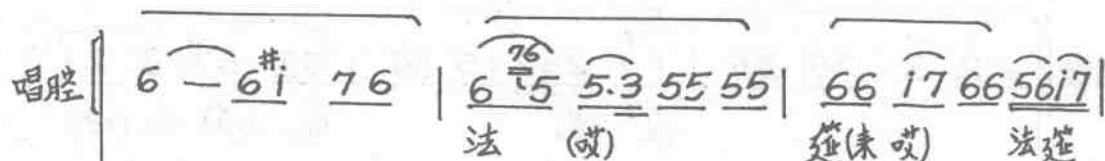 唱腔 6 — 6 #i 7 6 | 6 76 5 5.3 55 55 | 66 i7 66 56i7 |
法 (哎) 筵(来 哎) 法筵